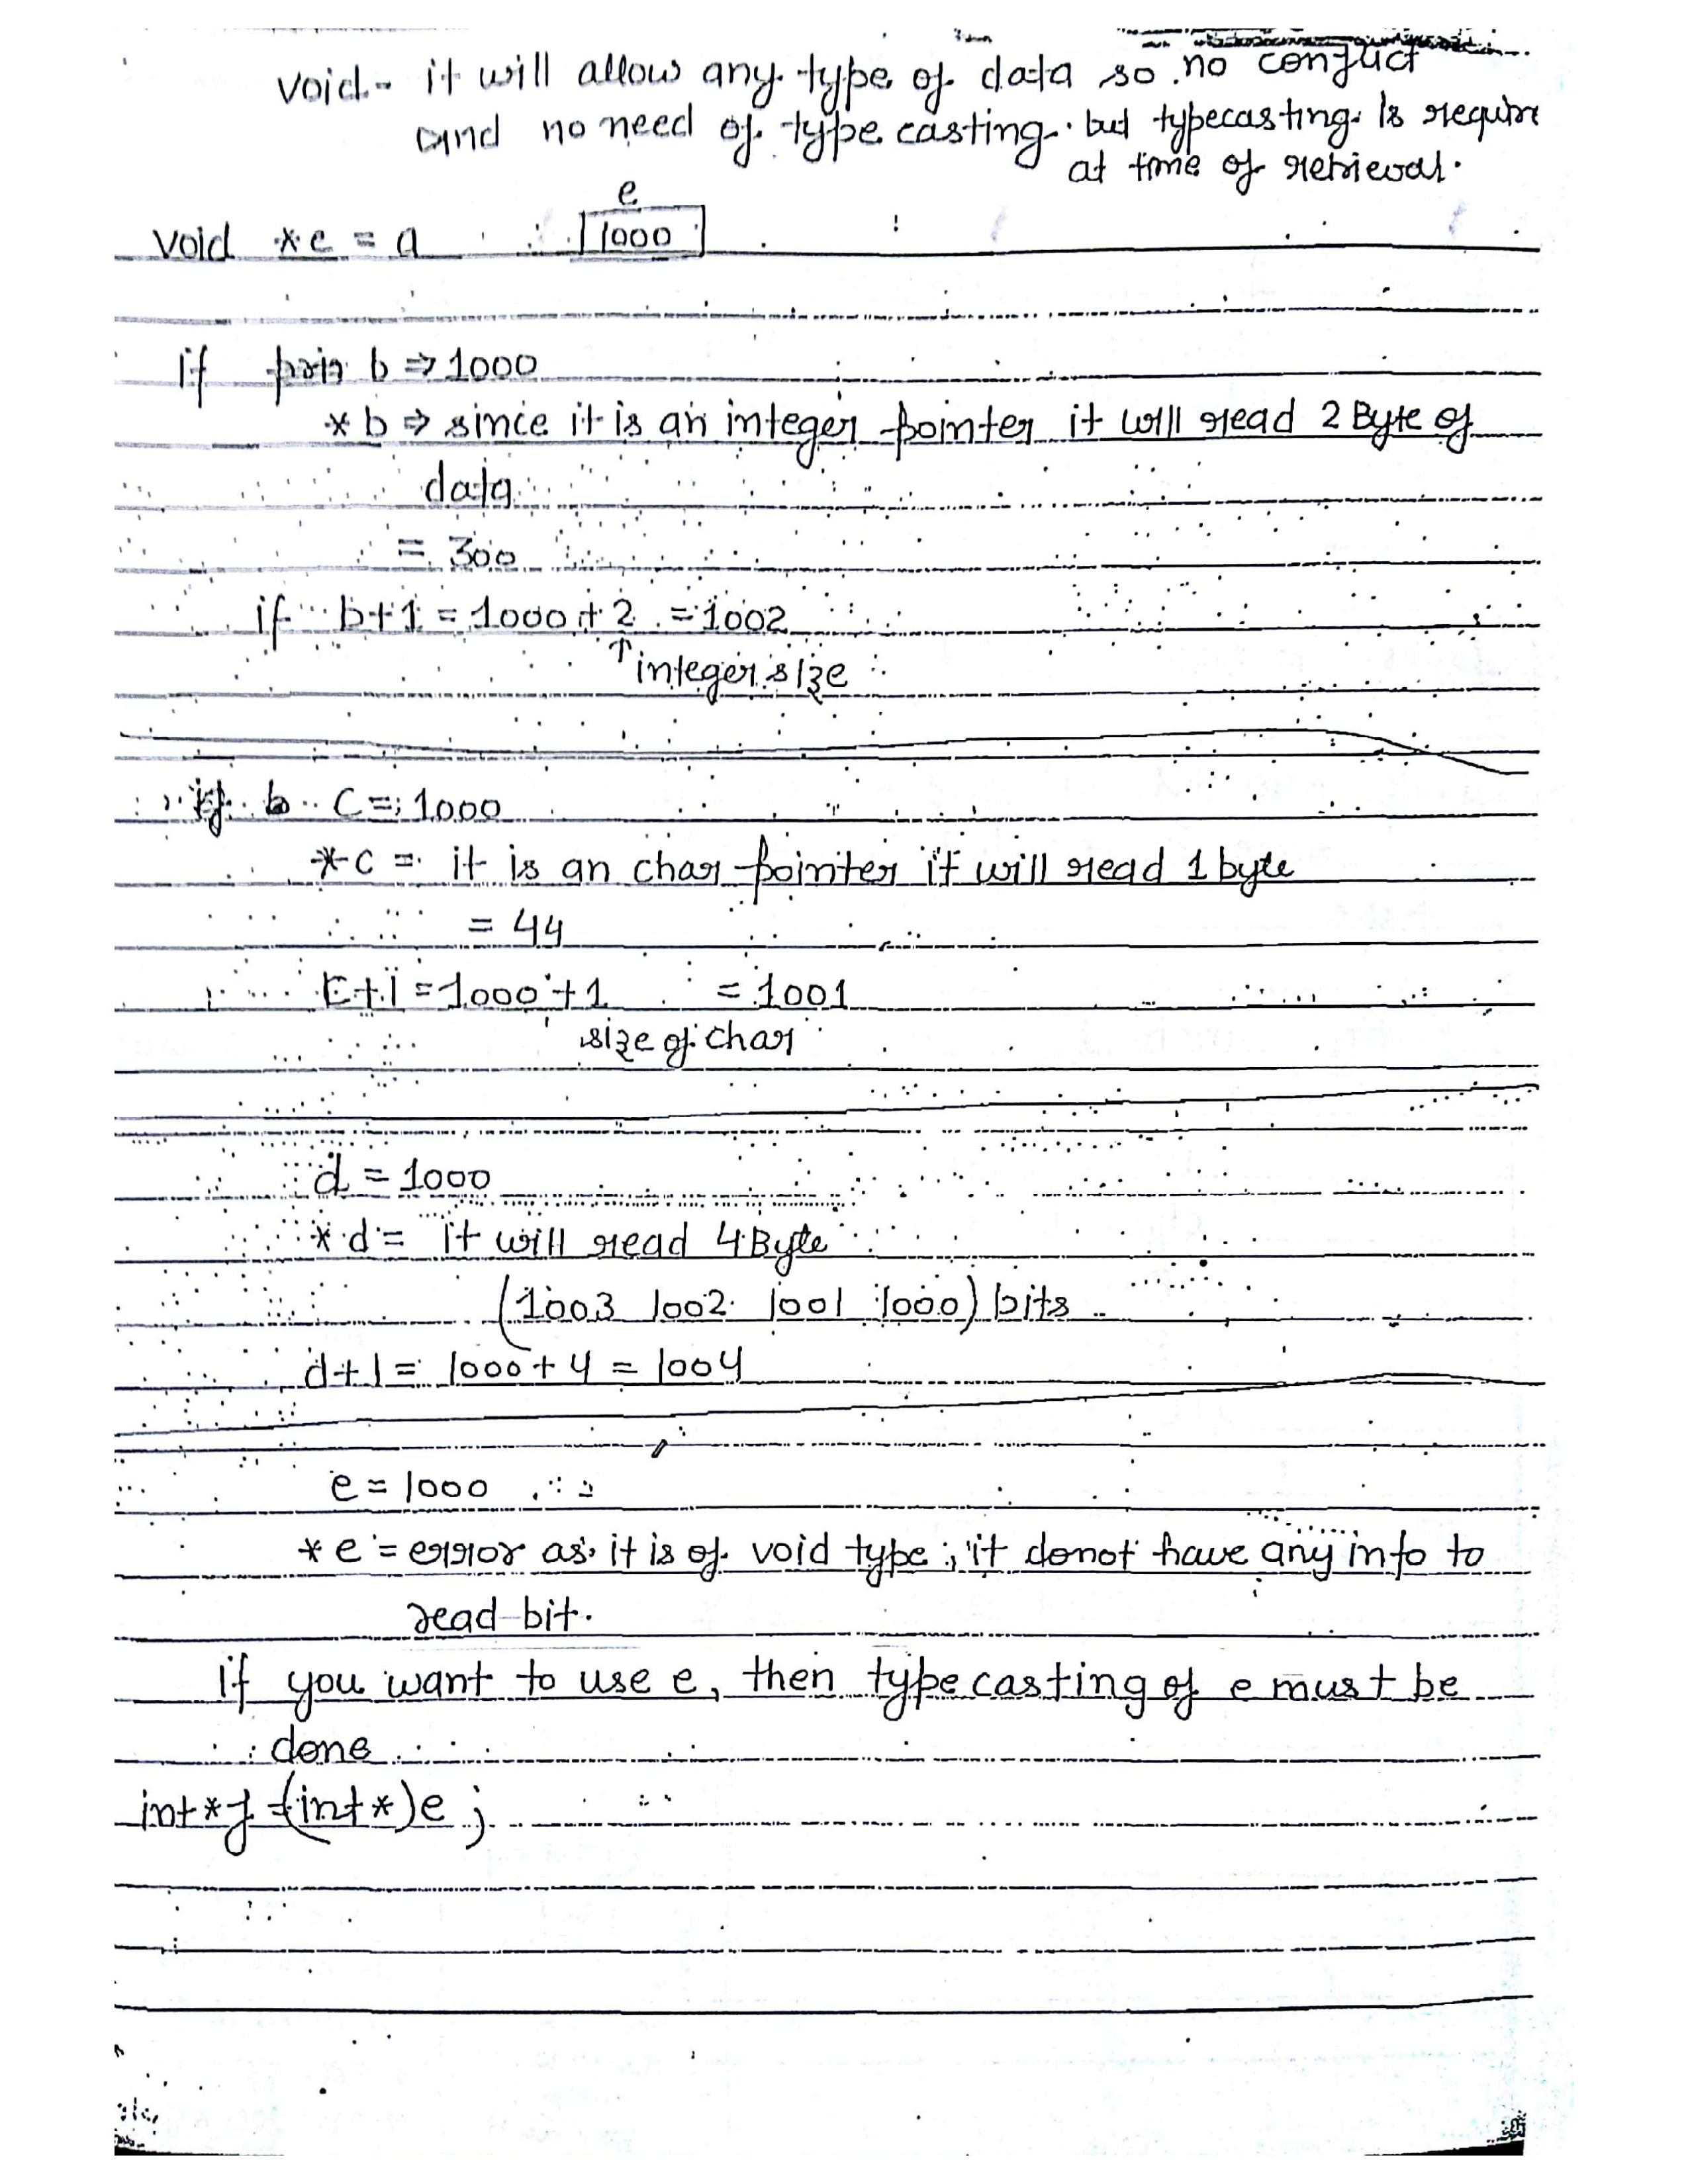 void - it will allow any type of data so no conflict
and no need of type casting. but typecasting is require
at time of retrieval.
e
void *e = a 1000
if prin b ⇒ 1000
*b ⇒ since it is an integer pointer it will read 2 Byte of
data
= 300
if b+1 = 1000 + 2 = 1002
↑ integer size
if b C = 1000
*c = it is an char pointer it will read 1 byte
= 44
C+1 = 1000 + 1 = 1001
size of char
d = 1000
*d = it will read 4 Byte
(1003 1002 1001 1000) bits
d+1 = 1000 + 4 = 1004
e = 1000
*e = error as it is of void type, it donot have any info to
read bit.
if you want to use e, then type casting of e must be
done
int *f = (int *)e ;